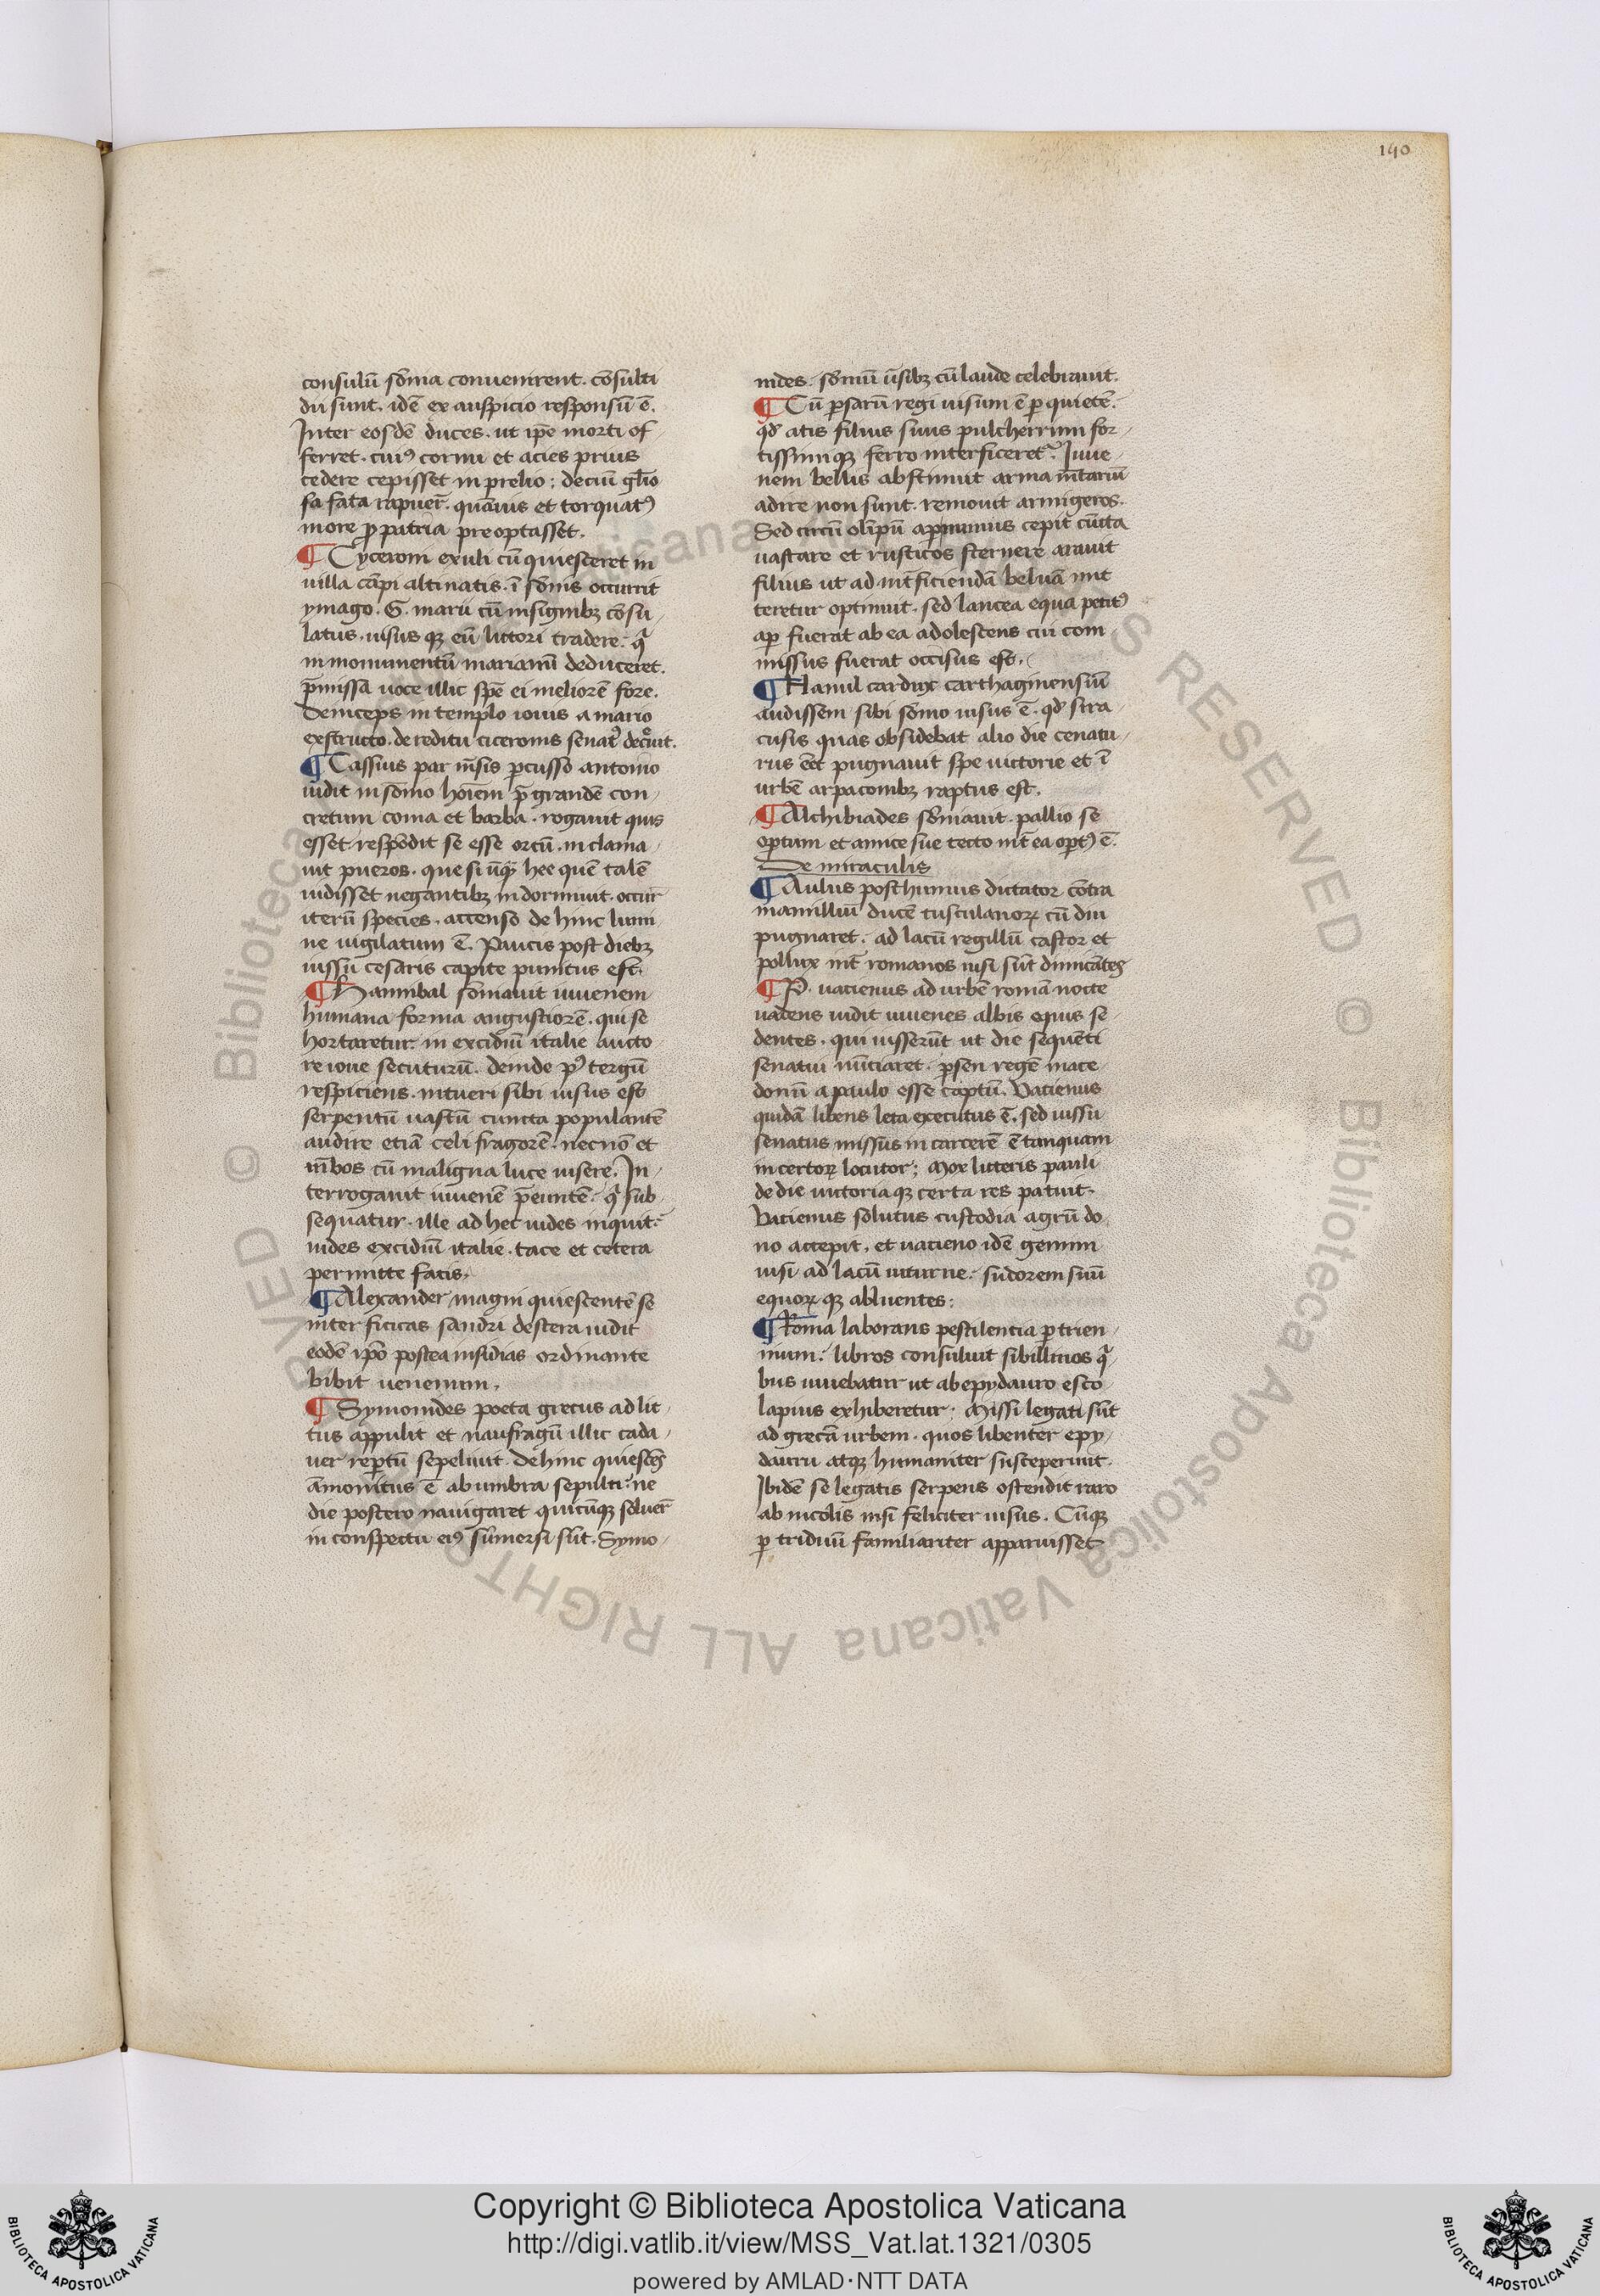 190
consulū sōnia conuenirent. cōsulti
dii sunt. idē ex auspicio responsū ē.
Inter eosdē duces. ut ip̄e morti of-
ferret. cuiꝰ cornu et acies prius
cedere cepisset in prelio; deciū gl̄io
sa fata rapuer̄. quāuis et torquatꝰ
more ꝓ patria preoptasset.
¶ Cyceroni exuli cū quiesceret in
uilla cāpi altinatis. ī sōnis occurrit
ymago. G. marii cū insignibꝫ cōsu-
latus. uisus qꝫ eū lictori tradere. qͥ
in monumentū marianū deduceret.
p̄missa uoce illic spē ei meliorē fore.
Deinceps in templo iouis a mario
exstructo. de reditu ciceronis senatꝰ decͦuit.
¶ Cassius par mēsis ꝑcusso antonio
uidit in sōmo hoīem p̄grandē con-
cretum coma et barba. rogauit quis
esset respōdit se esse orcū. inclama-
uit pueros. que si ūqͣ hec quē talē
uidisset negantibꝫ indormiuit. occur̄
iterū species. accenso dehinc lumi-
ne uigilatum ē. Paucis post diebꝫ
iussu cesaris capite punitus est.
¶ Hannibal sōniauit iuuenem
humana forma angustiorē. qui se
hortaretur. in excidiū italie aucto-
re ioue secuturū. deinde pꝰ tergū
respiciens. intueri sibi uisus est
serpentū uastū cuncta populantē
audire etiā celi fragorē. necnō et
nības cū maligna luce uisere. In-
terrogauit iuuenē p̄euntē. qͥ sub-
sequatur. ille ad hec uides inquit.
uides excidiū italie. tace et cetera
permitte fatis.
¶ Alexander magni quiescentē se
interficicas sandri dextera uidit
eodē ip̄o postea insidias ordinante
bibit uenenum.
¶ Symonides poeta grecus ad lit-
tus appulit et naufragū illic cada-
uer reꝑtū sepeliuit. dehinc quiescēs
āmonitus ē ab umbra sepulti. ne
die postero nauigaret quicūqꝫ soluer̄
in conspectu eiꝰ sūmersi sūt. Symo-
nides. sōniū ūsibꝫ cū laude celebrauit.
¶ Cū ꝑsarū regi uisum ē ꝑ quietē.
qd̄ atis filius suus pulcherrimi for-
tissimiqꝫ ferro interficeretᷣ. Iuue-
nem bellis abstinuit arma mētariū
adire non sunt. remouit armigeros.
Sed circū olīpū aꝑ nimius cepit cūcta
uastare et rusticos sternere arauit
filius ut ad int̄ficiendā beluā mit
teretur optinuit. sed lancea equa petitꝰ
aꝑ fuerat ab ea adolescens cui com
missus fuerat occisus est.
¶ Hamil car dux carthaginensiū
audissem sibi sōmo uisus ē. qd̄ sira-
cusis quas obsidebat alio die cenatu-
rus eēt pugnauit spe uictorie et ī
urbē arpacombꝫ raptus est.
¶ Alchibiades sōniauit. pallio se
oꝑtum et amice sue tecto int̄ ea oꝑtꝰ ē.
De miraculis
¶ Aulus posthumus dictator cōtra
mamilliū ducē tusculanoꝝ cū diu
pugnaret. ad lacū regillū castor et
pollux int̄ romanos uisi sūt dimicātes
¶ P. uatienus ad urbē romā nocte
uadens uidit iuuenes albis equis se
dentes. qui iusserūt ut die sequēti
senatui nūciaret. ꝑsen regē mace
donū a paulo esse captū. Vatienus
quidā libens leta executus ē. sed iussu
senatus missus in carcerē ē tanquam
incertoꝝ locutor; Mox litteris pauli
de die uictoriaqꝫ certa res patuit.
Vatienus solutus custodia agrū do-
no accepit. et uatieno idē gemini
uisi ad lacū iuturne. sudorem suū
equoꝝ qꝫ abluentes:
¶ Roma laborans pestilentia ꝑ trien-
nium. libros consuluit sibillinos qͥ-
bus iuuebatur ut ab epydauro esco
lapius exhiberetur; Missi legati sūt
ad grecā urbem. quos libenter epy-
dauru atqꝫ humaniter susceperunt.
Ibidē se legatis serpens ostendit raro
ab incolis nisi feliciter uisus. Cūqꝫ
ꝑ triduū familiariter apparuisset
© Biblioteca Apostolica Vaticana ALL RIGHTS RESERVED © Biblioteca Apostolica Vaticana ALL RIGHTS RESERVED
Copyright © Biblioteca Apostolica Vaticana
http://digi.vatlib.it/view/MSS_Vat.lat.1321/0305
powered by AMLAD·NTT DATA
BIBLIOTECA APOSTOLICA VATICANA
BIBLIOTECA APOSTOLICA VATICANA